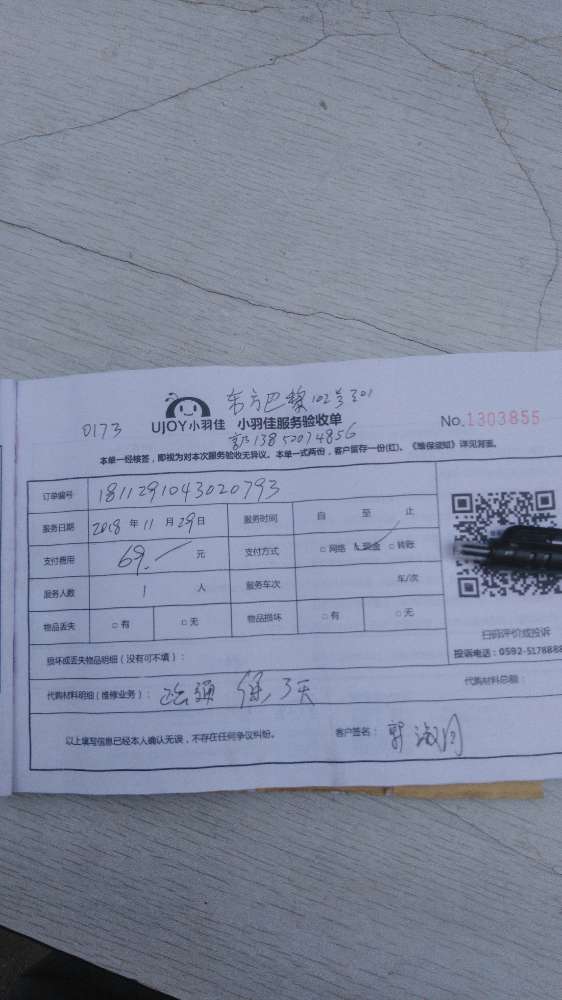 东方巴黎102号301
0173 UJOY小羽佳 小羽佳服务验收单 No.1303855
郭13852074856
本单一经核签，即视为对本次服务验收无异议。本单一式两份，客户留存一份(红)。《维保须知》详见背面。
订单编号 1811291043020793
服务日期 2018 年 11 月 29 日 服务时间 自 至 止
支付费用 69.— 元 支付方式 □ 网络 ☑ 现金 □ 转账
服务人数 1 人 服务车次 车/次
物品丢失 □ 有 □ 无 物品损坏 □ 有 □ 无
扫码评价或投诉
投诉电话：0592-5178888
损坏或丢失物品明细（没有可不填）：
代购材料明细（维修业务）： 疏通 保 3天 代购材料总额：
以上填写信息已经本人确认无误，不存在任何争议纠纷。 客户签名： 郭淑